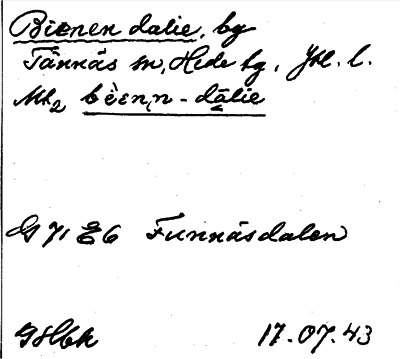 Bienen dalie, by
Tännäs sn, Hede tg, Jtl. l.
Ml2 bèen,n - dālie
G 71 E6 Funnäsdalen
17.07.43